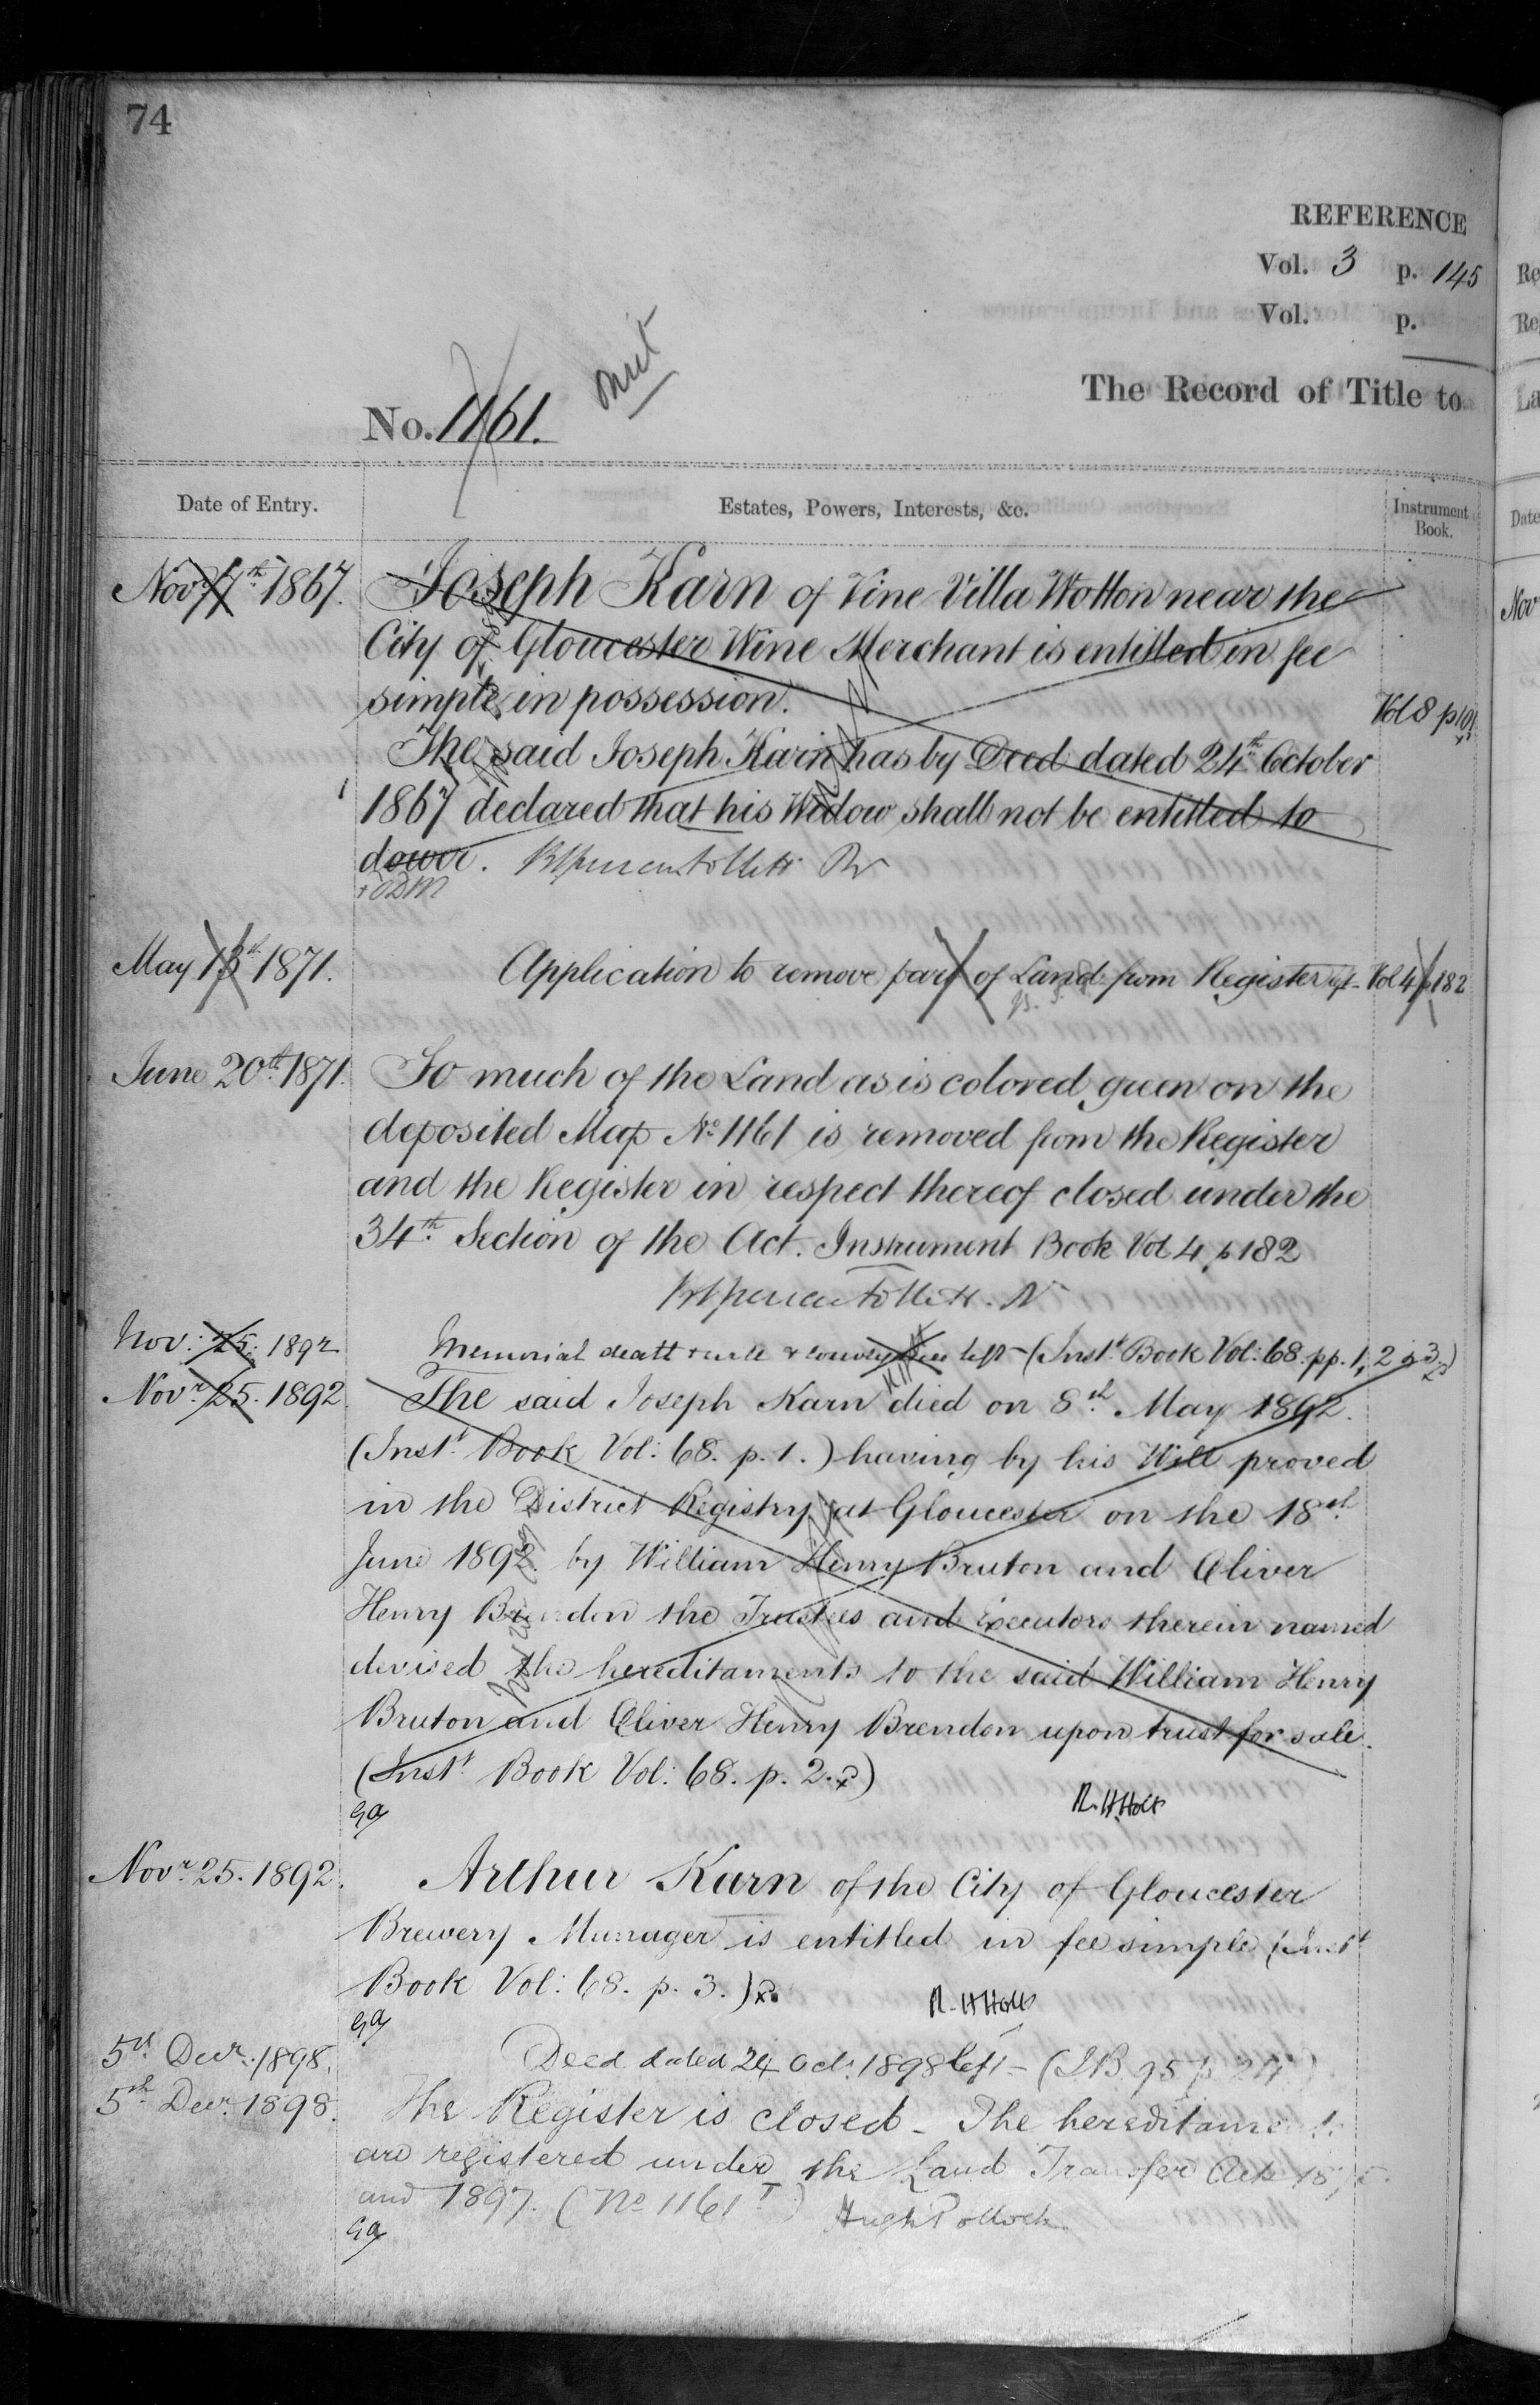 74
REFERENCE
Vol. 3 p. 145
Vol. p.
The Record of Title to
No. 1161. omit
Date of Entry.
Estates, Powers, Interests, &c.
Instrument Book.
Novr 7th 1867. Joseph Karn of Vine Villa Wotton near the
City of Gloucester Wine Merchant is entitled in fee
simple in possession.
Vol 8 p 101
The said Joseph Karn has by Deed dated 24th October
1867 declared that his Widow shall not be entitled to
dower.
May 13th 1871. Application to remove part of Land from Register left Vol 4 p 182
June 20th 1871. So much of the Land as is colored green on the
deposited Map No 1161 is removed from the Register
and the Register in respect thereof closed under the
34th Section of the Act. Instrument Book Vol 4 p 182
Nov: 25: 1892 Memorial death & will & conveyance left - (Inst. Book Vol: 68. pp. 1, 2 & 3)
Novr 25. 1892. The said Joseph Karn died on 8th May 1892.
(Inst. Book Vol: 68. p. 1.) having by his Will proved
in the District Registry at Gloucester on the 18th
June 1892 by William Henry Bruton and Oliver
Henry Brendon the Trustees and Executors therein named
devised the hereditaments to the said William Henry
Bruton and Oliver Henry Brendon upon trust for sale.
(Inst. Book Vol: 68. p. 2.)
R. H. Holt
Novr 25. 1892. Arthur Karn of the City of Gloucester
Brewery Manager is entitled in fee simple (Inst
Book Vol: 68. p. 3.)
R. H. Holt
5th Decr. 1898. Deed dated 24 Oct. 1898 left - (I B 95 p
5th Decr. 1898. The Register is closed - The hereditaments
are registered under the Land Transfer Acts 1875
and 1897. (No 1161 T) Hugh Pollock